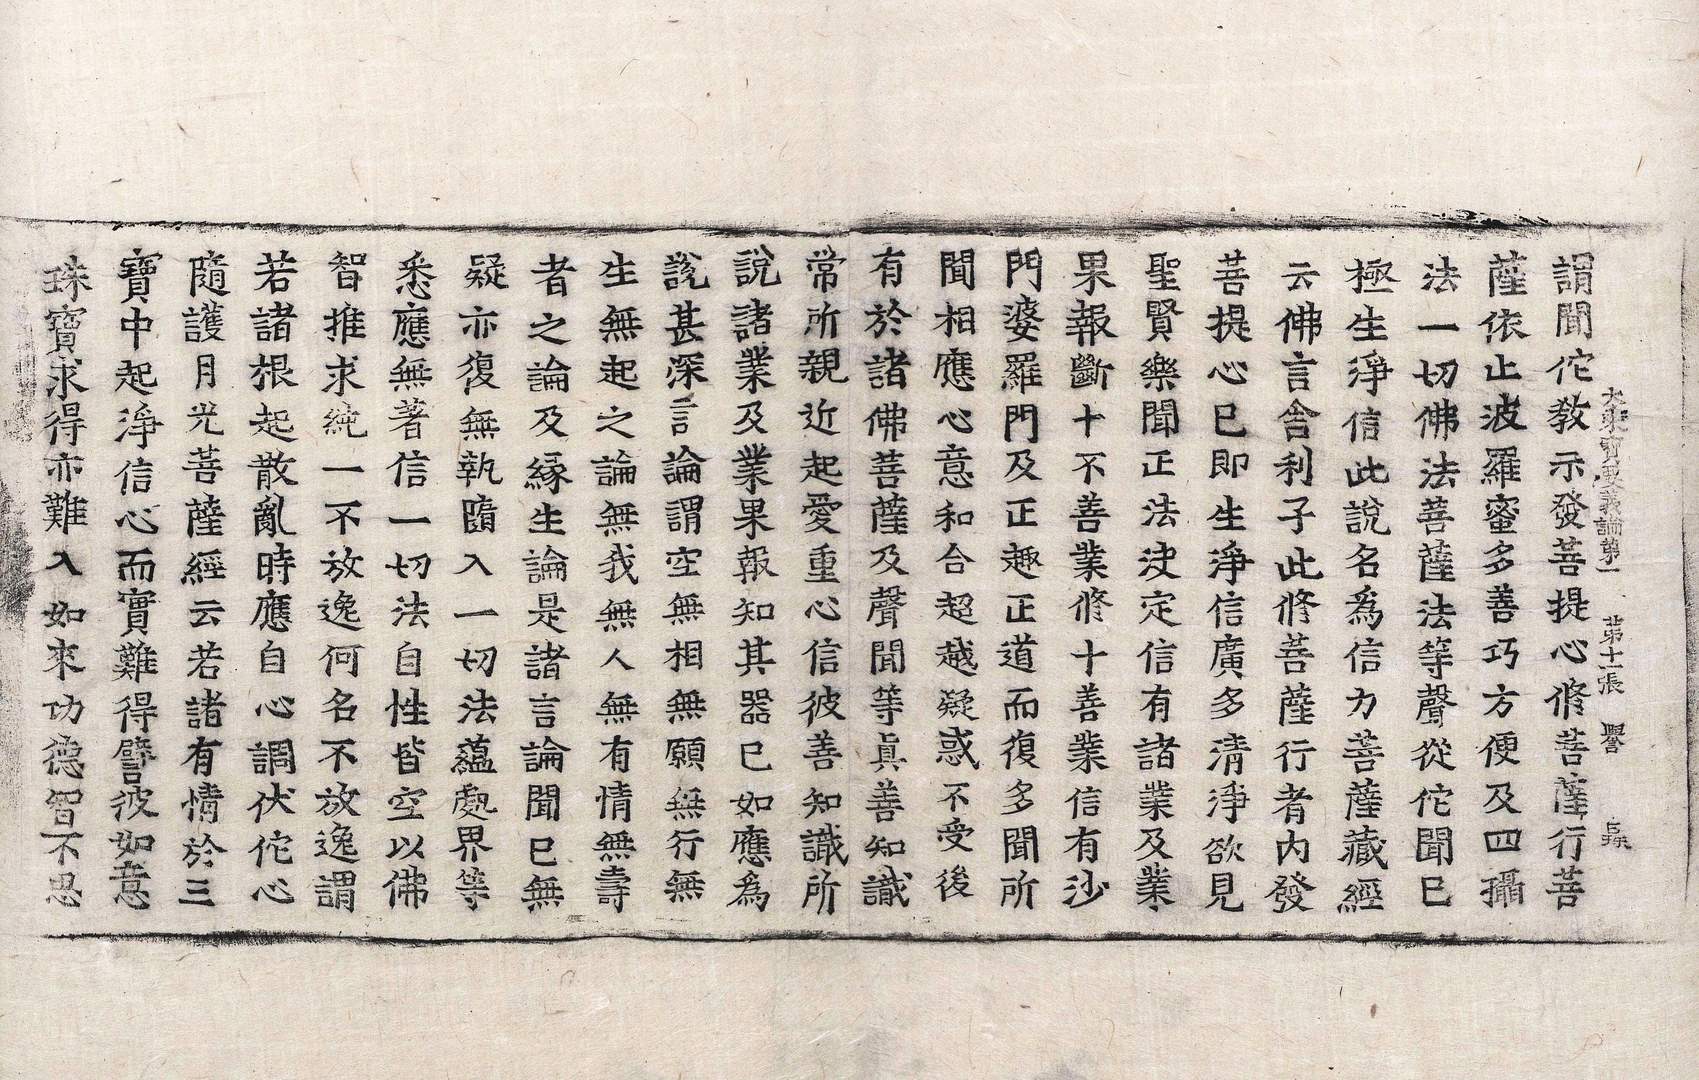 大乘寶要義論第一　苐十一張　譽
謂聞佗教示發菩提心脩菩薩行菩
薩依止波羅蜜多善巧方便及四攝
法一切佛法菩薩法等聲從佗聞已
極生淨信此說名為信力菩薩藏經
云佛言舍利子此脩菩薩行者内發
菩提心已即生淨信廣多清淨欲見
聖賢樂聞正法決定信有諸業及業
果報斷十不善業脩十善業信有沙
門婆羅門及正趣正道而復多聞所
聞相應心意和合超越疑惑不受後
有於諸佛菩薩及聲聞等眞善知識
常所親近起愛重心信彼善知識所
說諸業及業果報知其器已如應為
說甚深言論謂空無相無願無行無
生無起之論無我無人無有情無壽
者之論及緣生論是諸言論聞已無
疑亦復無執隨入一切法蘊處界等
悉應無著信一切法自性皆空以佛
智推求純一不放逸何名不放逸謂
若諸根起散亂時應自心調伏佗心
隨護月光菩薩經云若諸有情於三
寶中起淨信心而實難得譬彼如意
珠寶求得亦難入如來功德智不思